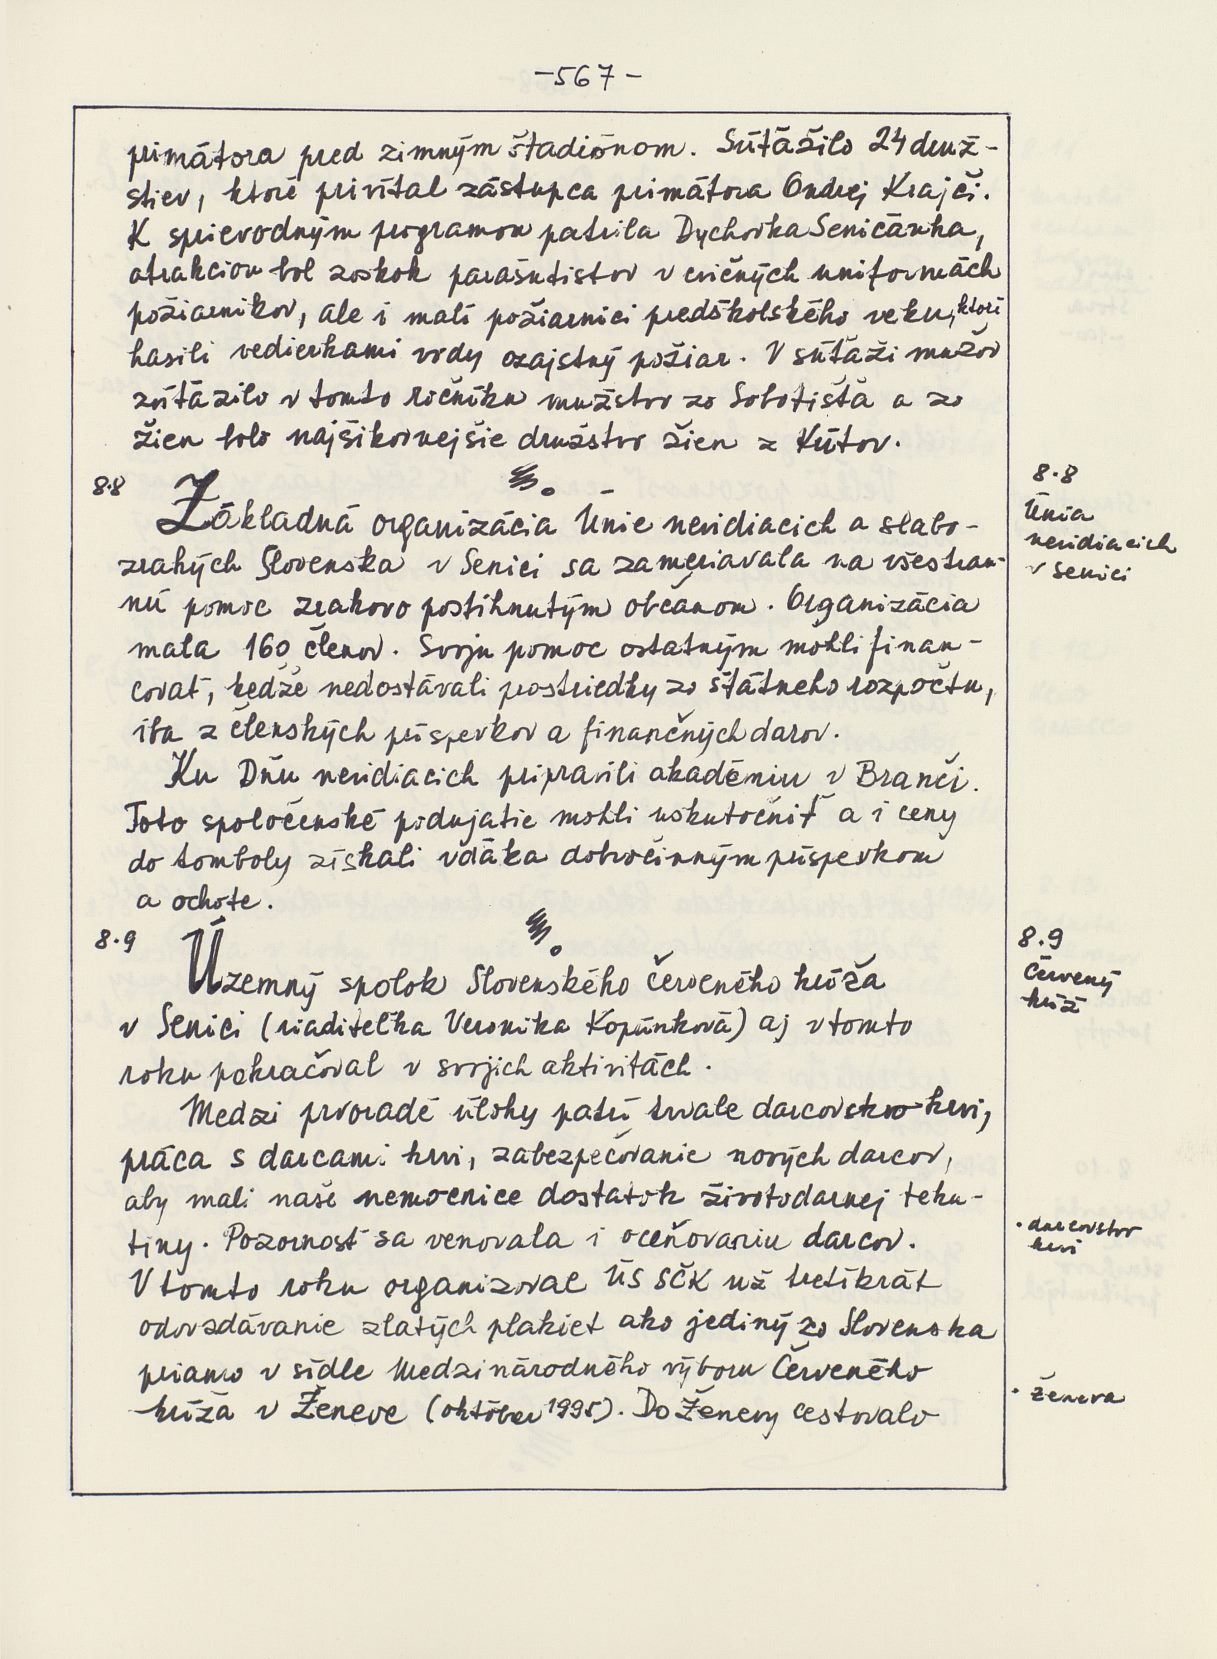 -567-
primátora pred zimným štadiónom. Súťažilo 24 druž-
stiev, ktoré privítal zástupca primátora Ondrej Krajči.
K sprievodným programom patrila Dychovka Seničanka,
atrakciou bol zoskok parašutistov v cvičných uniformách
požiarnikov, ale i malí požiarnici predškolského veku, ktorí
hasili vedierkami vody ozajstný požiar. V súťaži mužov
zvíťazilo v tomto ročníku mužstvo zo Sobotišťa a zo
žien bolo najšikovnejšie družstvo žien z Kútov.
8.8
Základná organizácia Únie nevidiacich a slabo-
zrakých Slovenska v Senici sa zameriavala na všestran-
nú pomoc zrakovo postihnutým občanom. Organizácia
mala 160 členov. Svoju pomoc ostatným mohli finan-
covať, keďže nedostávali prostriedky zo štátneho rozpočtu,
iba z členských príspevkov a finančných darov.
Ku Dňu nevidiacich pripravili akadémiu v Branči.
Toto spoločenské podujatie mohli uskutočniť a i ceny
do tomboly získali vďaka dobročinným príspevkom
a ochote.
8.9
Územný spolok Slovenského červeného kríža
v Senici (riaditeľka Veronika Kopúnková) aj v tomto
roku pokračoval v svojich aktivitách.
Medzi prvoradé úlohy patrí trvale darcovstvo krvi,
práca s darcami krvi, zabezpečovanie nových darcov,
aby mali naše nemocnice dostatok životodarnej teku-
tiny. Pozornosť sa venovala i oceňovaniu darcov.
V tomto roku organizoval ÚS SČK už tretíkrát
odovzdávanie zlatých plakiet ako jediný zo Slovenska
priamo v sídle Medzinárodného výboru Červeného
kríža v Ženeve (október 1995). Do Ženevy cestovalo
8.8
Únia
nevidiacich
v Senici
8.9
Červený
kríž
• darcovstvo
krvi
• Ženeva